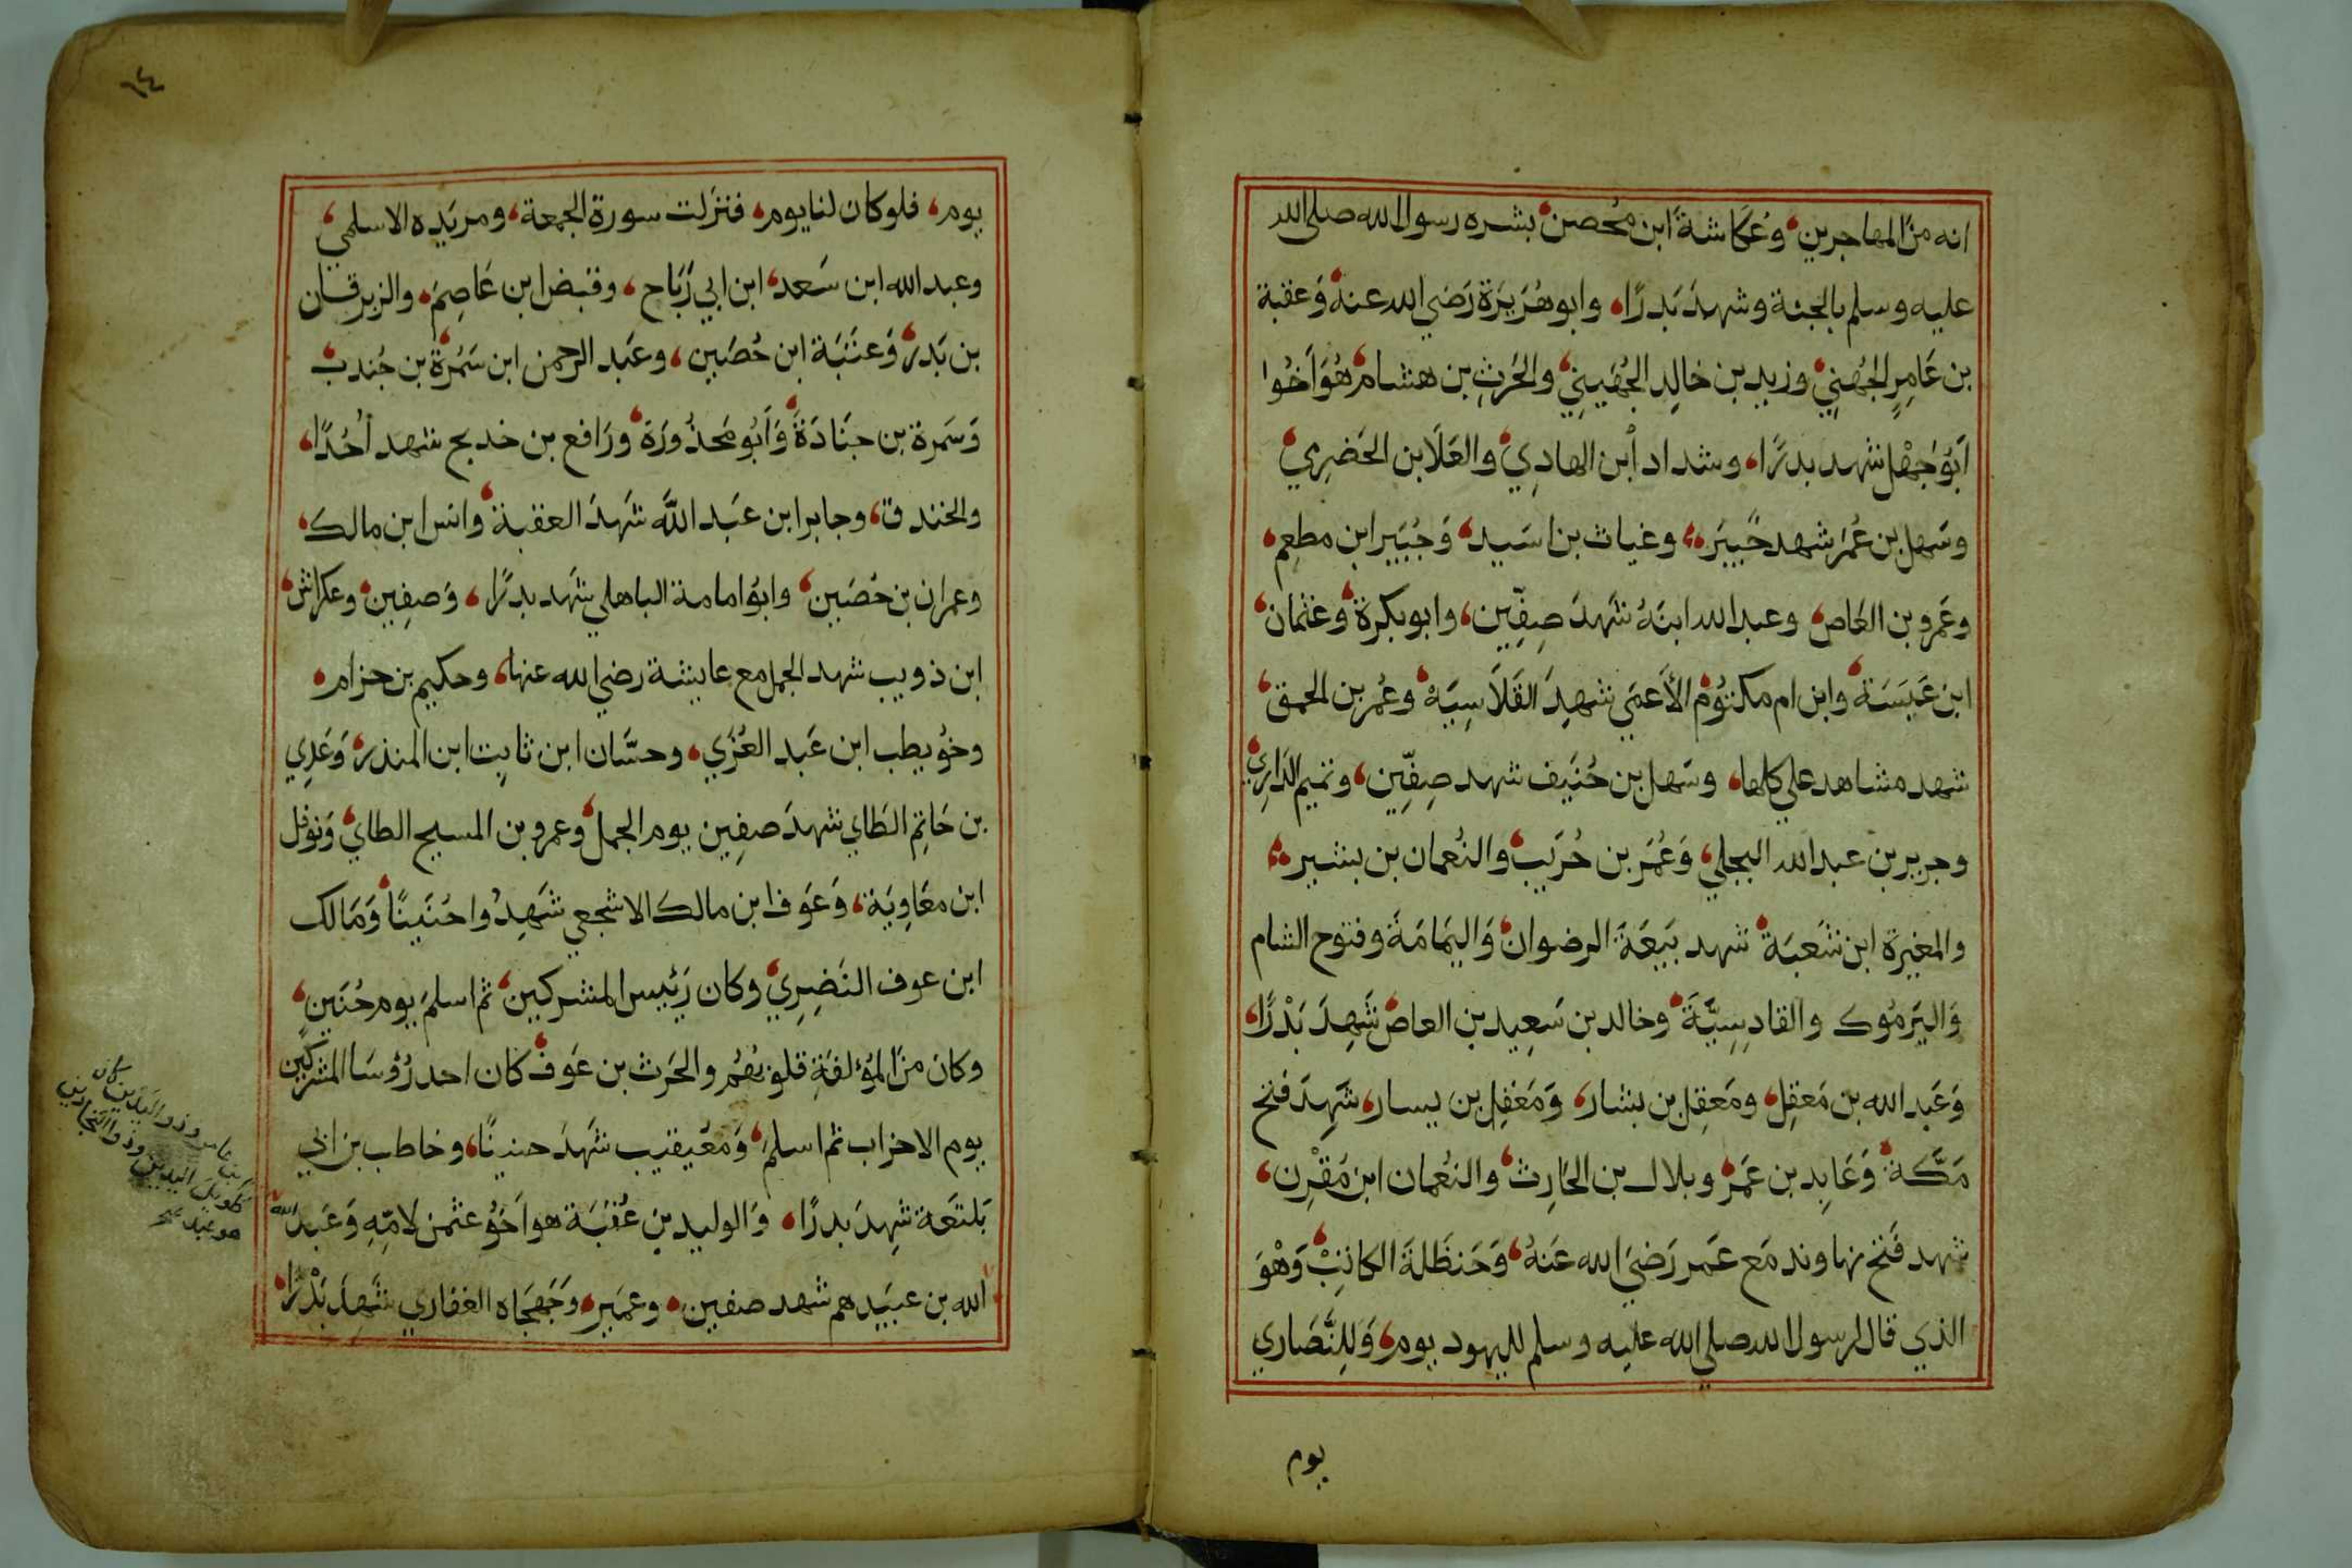 انه من المهاجرين وعُكاشة ابن محصن بشره رسول الله صلى الله
عليه وسلم بالجنة وشهد بَدرًا، وابو هُرَيرَة رَضي الله عنهُ وَعقبة
بن عَامِرٍ الجُهنِي، وزيد بن خالِد الجُهَينِي، والحَرثِ بن هشام، هُوَ اَخُوا
اَبوُ جهْل شهد بدرًا، وشداد اُبن الهادِي، والعَلَا بن الحَضرِي
وسَهل بن عُمَر شهد خَيبَر، وغياث بن اسَيد، وَجُبَير ابن مطعِم،
وعَمرو بن العَاص، وعبد الله ابنهُ شهَدَ صِفِّين، وابو بكرة، وعَثمان،
ابن عَبسَة، وابن ام مكتوُم الأَعمَي شهِدَ القَلَاسِيَة، وعُمر بن الحمق،
شهد مشاهد علي كلها، وسَهل بن حُنَيف شهد صِفِّين، وتميم الدَاري
وجرير بن عبد الله البجلي، وَعُمَر بن حُرَيب، والنُعمان بن بشير،
والمغيرَة ابن شَعبَة، شهد بَيعَة الرضوان، وَاليمَامَة وفتوح الشام
وَاليَرمُوك والقادِسِيَّة، وخالد بن سَعِيد بن العاص، شَهِدَ بَدْرًا،
وَعَبد الله بن مَعقِل، ومَعقِل بن بشار، وَمَعَفِل بن يسار، شَهِدَ فتح
مَكَّة، وَعَابِد بن عَمَر، وبلال بن الحَارِث، والنُعمان ابن مَقْرِن،
شهد فَتح نهاوند مَع عَمر رَضيَ الله عَنهُ، وَحَنظَلة الكاتِبْ، وَهْوَ
الذي قال لرسول الله صلي الله عليه وسلم لليهود يوم، وَللِنَّصَاري
يوم
١٤
يوم، فلو كان لنا يوم، فنزلت سورة الجمعة، ومريَده الاسلمي،
وعبد الله ابن سَعد، ابن ابي رَبَاح، وقبض ابن عَاصِم، والزبرقان
بن بَدر، وَعتَبَة ابن حُصَين، وعَبد الرحمن ابن سَمُرة بن جُندب،
وَسَمرة بن جنَادَة، وَاَبُو مَحذُورَة، ورَافع بن خديج شهد أُحُدًا،
والخندق، وجابر ابن عَبد اللَّه شهَدَ العقبة، وانس ابن مالك،
وعمران بن حُصَين، وابوُ امامة الباهلي شهَد بدرًا، وَصفِين، وعكراش،
ابن ذويب شهد الجمل مع عايشة رضي الله عنها، وحكيم بن حزام،
وخوُيطب ابن عَبد العُزَي، وحسَّان ابن ثابِت ابن المنذر، وَعَدِي
بن حَاتِم الطَاي شهدَ صفِين يوم الجمل، وعمرو بن المسيح الطاي، وَنوفل
ابن معَاوِيَة، وَعَوف ابن مالك الاشجعي شَهِدُوا حُنَينًا، وَمَالك
ابن عوف النَضِرِي، وكان رَئيس المشركين، ثم اسلمَ يوم حُنَينٍ،
وكان من المُؤلفَةِ قلوبُهُم والحَرث بن عَوف، كان احد رُؤسَا المشركين
يوم الاحزاب ثم اسلم، وَمَعُيقيب شهَدَ حنينًا، وخاطب بن ابي
بَلتَعَة شِهِدَ بدرًا، وَالوليد بن عُقبَة هو اَخوُ عثمن لامِّهِ وَعَبد الله
الله بن عبَيد هم شهد صفين، وعمَير، وجَهجَاه الغفاري شَهِدَ بَدْرًا،